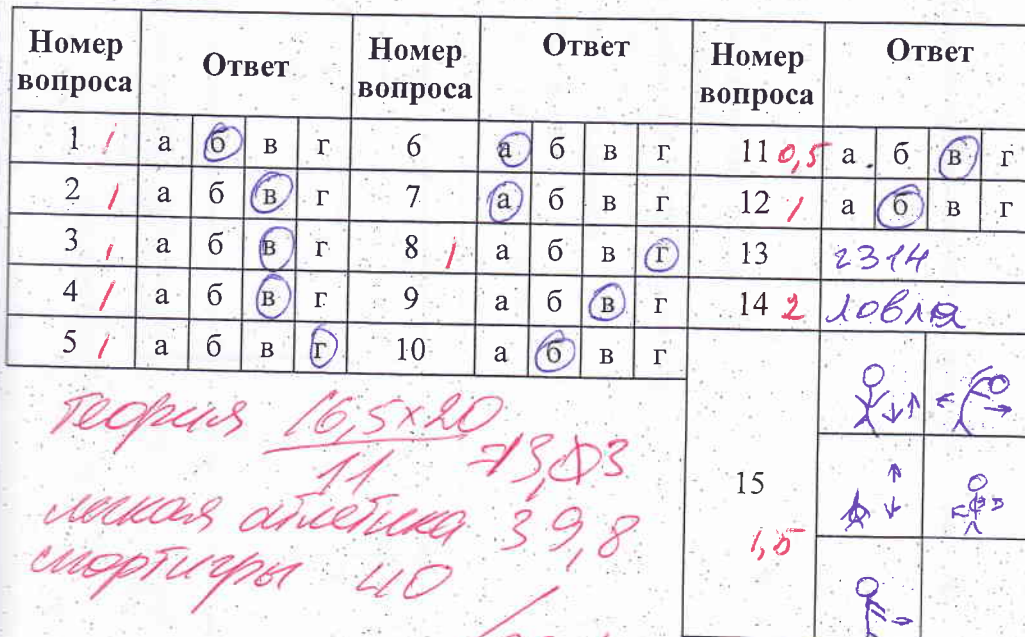 Номер вопроса Ответ Номер вопроса Ответ Номер вопроса Ответ
1 1 а б в г 6 а б в г 11 0,5 а б в г
2 1 а б в г 7 а б в г 12 1 а б в г
3 1 а б в г 8 1 а б в г 13 2314
4 1 а б в г 9 а б в г 14 2 ловля
5 1 а б в г 10 а б в г
15
1,5
Теория 16,5x20
11
легкая атлетика 39,8
спортигры 40